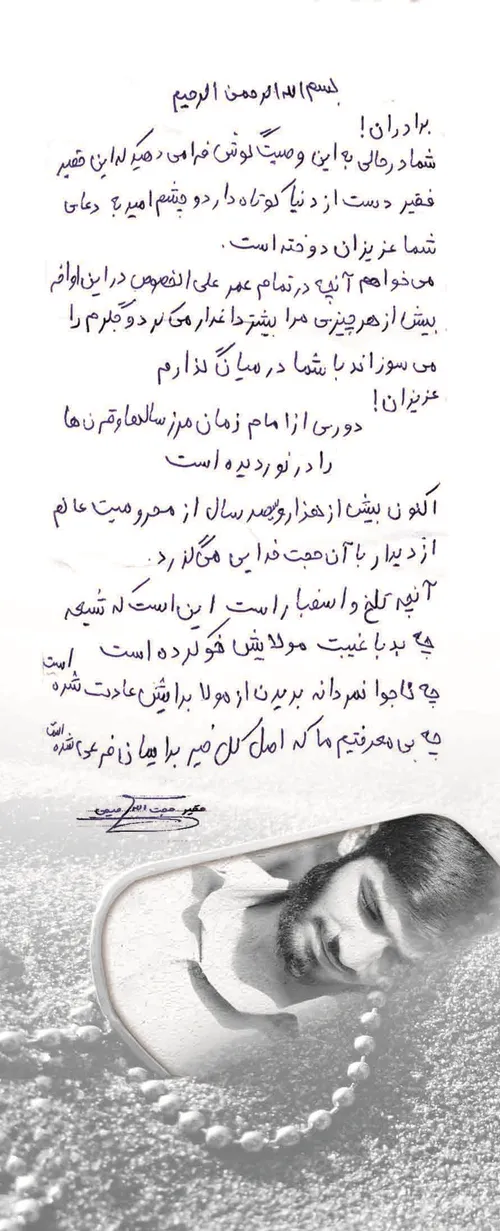 بسم الله الرحمن الرحیم
برادران!
شما در حالی به این وصیت گوش فرا می دهید که این حقیر
فقیر دست از دنیا کوتاه دارد و چشم امید به دعای
شما عزیزان دوخته است.
می خواهم آنچه در تمام عمر علی الخصوص در این اواخر
بیش از هر چیزی مرا بیشتر داغدار می کرد و جگرم را
می سوزاند با شما در میان گذارم
عزیزان!
دوری از امام زمان مرز سالها و قرن ها
را در نوردیده است
اکنون بیش از هزار و سیصد سال از محرومیت عالم
از دیدار با آن حجت خدایی می گذرد.
آنچه تلخ و اسفبار است این است که شیعه
چه بد با غیبت مولایش خو کرده است
چه ناجوانمردانه بریدن از مولا برایش عادت شده است
چه بی معرفتیم ما که اصل کل خیر برایمان فرعی شده است
حقیر حجت الله رحیمی